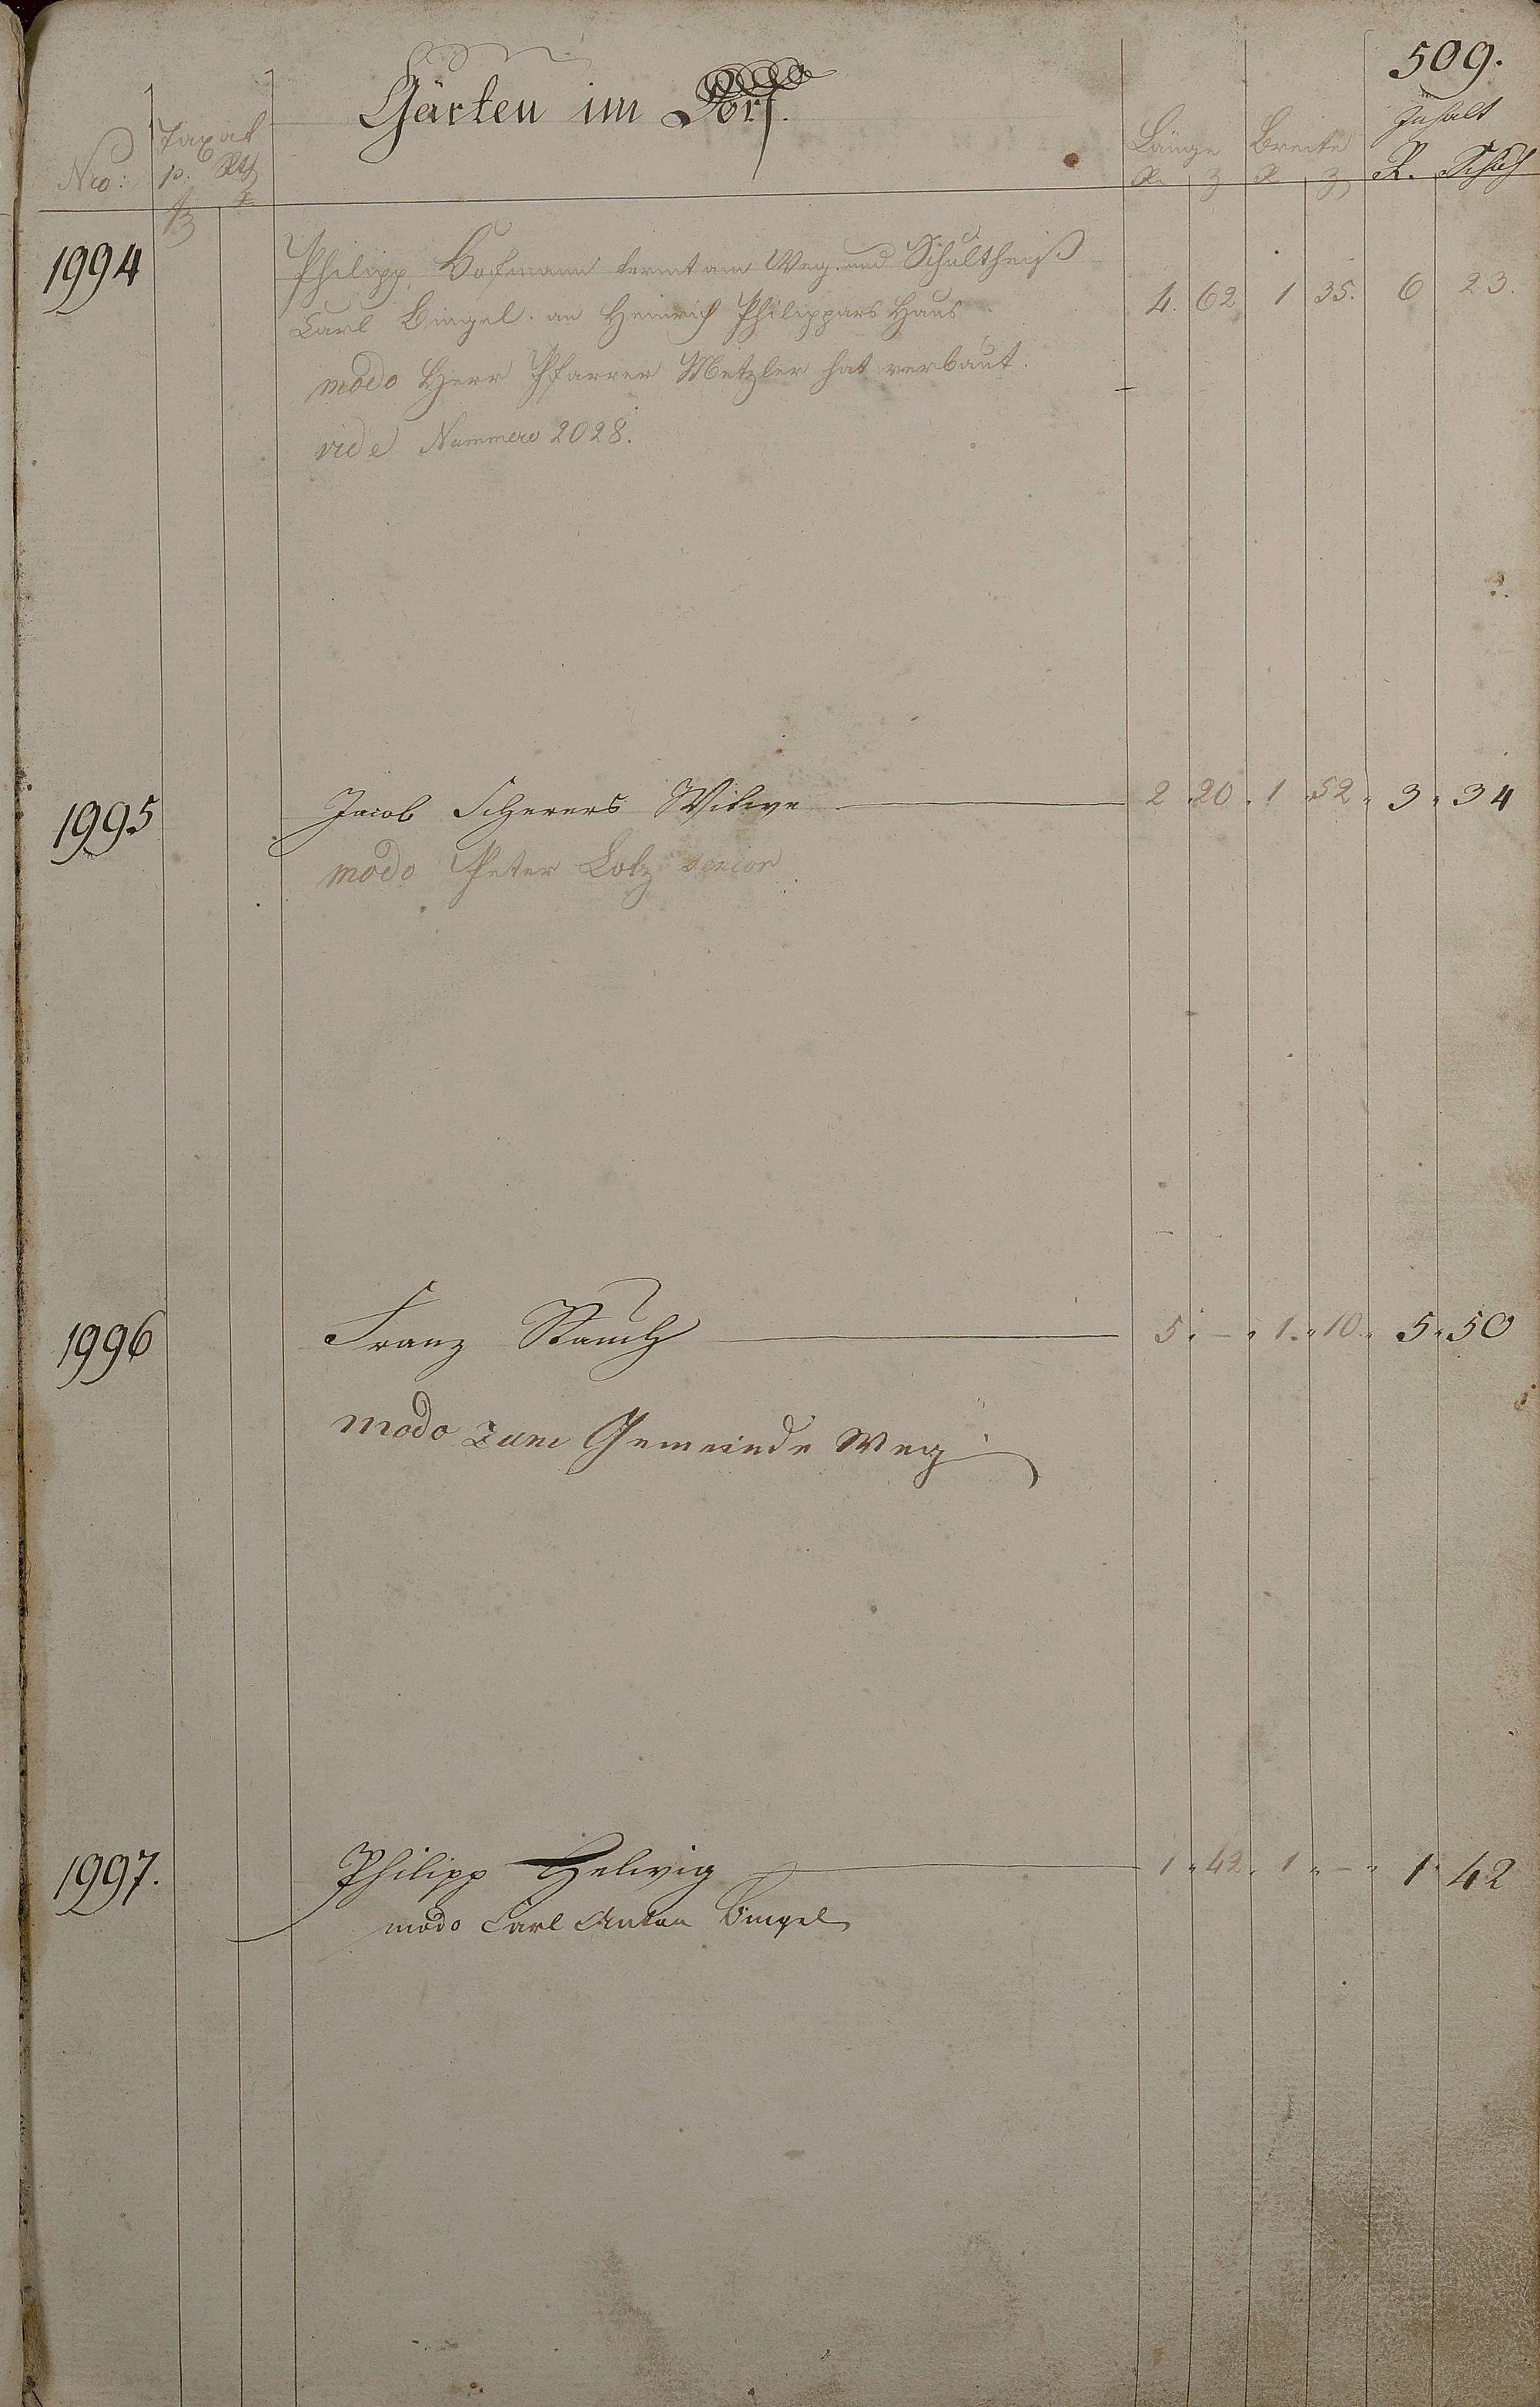 509.
Gärten im Dorf.
Nro: Taxat Länge Breite Inhalt
p. Rth R. z R z R. Schuh
1994 Philipp Hofmann am Weg und Schultheiß
Carl Bingel. an Heinrich Philippars Haus 4. 62 1 35. 6 23.
modo Herr Pfarrer Metzler hat verbaut.
vide Nummero 2028.
1995 Jacob Scherers Witwe 2 20 1 52 3 34
modo Peter Lotz senior
1996 Franz Rauch 5 – 1. 10. 5 50
modo zum Gemeinde Weg
1997. Philipp Helwig 1 42 1 – 1 42
modo Carl Anton Bingel